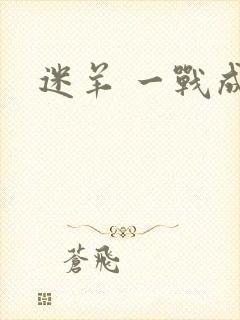 迷羊 一戰成
蒼飛